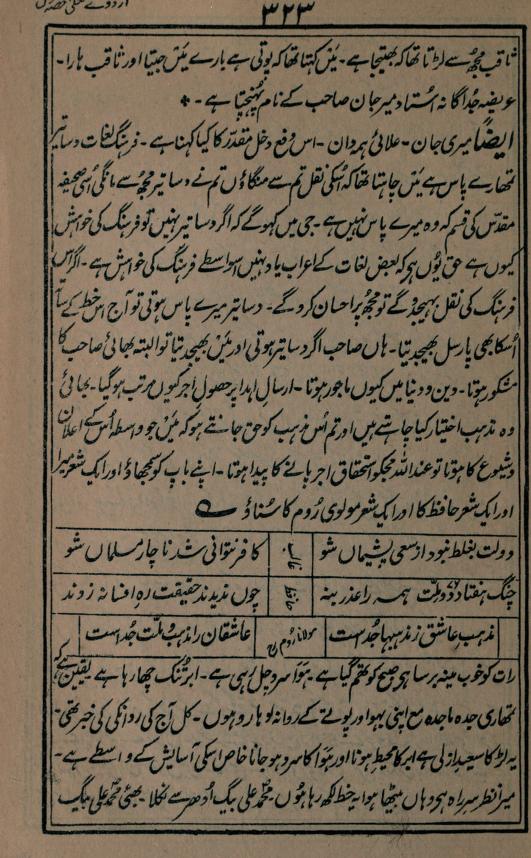 ۳۲۳
ثاقب مجھ سے لڑتا تھا کہ بھتیجا ہے۔ میں کہتا تھا کہ پوتی ہے بارے میں جیتا اور ثاقب ہارا۔
عریضہ جداگانہ استاد میر جان صاحب کے نام پہنچتا ہے۔
ایضاً میری جان۔ علائی ہمہ دان۔ اس دفع دخل مقدر کا کیا کہنا ہے۔ فرہنگ لغات دساتیر
تمھارے پاس ہے میں چاہتا تھا کہ اسکی نقل تم سے منگاؤں تم نے دساتیر مجھ سے مانگی اسی صحیفہ
مقدس کی قسم کہ وہ میرے پاس نہیں ہے۔ جی میں کہو گے کہ اگر دساتیر نہیں تو فرہنگ کی خواہش
کیوں ہے حق یوں ہی کہ بعض لغات کے اعراب یاد نہیں اسواسطے فرہنگ کی خواہش ہے۔ اگر اس
فرہنگ کی نقل بھیجدو گے تو مجھ پر احسان کرو گے۔ دساتیر میرے پاس ہوتی تو آج اس خط کے ساتھ
اسکا بھی پارسل بھیجدیتا۔ ہاں صاحب اگر دساتیر ہوتی اور میں بھیجدیتا تو البتہ بھائی صاحب کا
مشکور ہوتا۔ دین و دنیا میں کیوں ماجور ہوتا۔ ارسال اہدا پر حصول اجر کیوں مرتب ہو گیا۔ بھائی
وہ مذہب اختیار کیا چاہتے ہیں اور تم اس مذہب کو حق جانتے ہو کہ میں جو واسطہ اس کے اعلان
و شیوع کا ہوتا تو عند اللہ مجکو استحقاق اجر پانے کا پیدا ہوتا۔ اپنے باپ کو سمجھاؤ اور ایک شعر میرا
اور ایک شعر حافظ کا اور ایک شعر مولوی روم کا سناؤ
دولت بغلط نبود از سعی پشیماں شو غالب کافر نتوانی شد ناچار مسلماں شو
جنگ ہفتاد و دو ملت ہمہ را عذر بنہ حافظ چوں ندیدند حقیقت رہ افسانہ زدند
مذہب عاشق ز مذہبہا جداست مولانا روم عاشقاں را مذہب و ملت جداست
رات کو خوب مینہ برسا ہی صبح کو تھم گیا ہے ہوا سرد چل رہی ہے۔ ابر تنک چھا رہا ہے یقین ہے کہ
تمھاری جدہ ماجدہ مع اپنی بہو اور پوتے کے روانہ لوہارو ہوں۔ کل آج کی روانگی کی خبر تھی۔
یہ لڑکا سعید ازلی ہے ابر کا محیط ہونا اور ہوا کا سرد ہو جانا خاص اسکی آسایش کے واسطے ہے۔
میرا منظر سر راہ ہی وہاں بیٹھا ہوا یہ خط لکھ رہا ہوں۔ محمد علی بیگ اودھر سے نکلا بھئی محمد علی بیگ